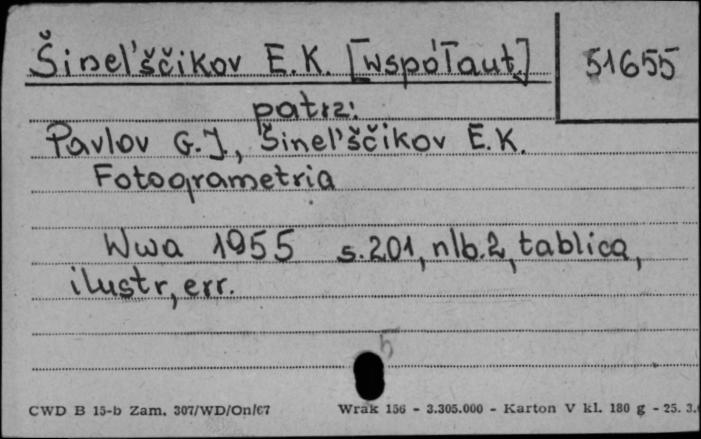 Šinel'ščikov E.K. [współaut.]
51655
patrz:
Pavlov G.J., Šinel'ščikov E.K.
Fotogrametria
Wwa 1955 s.201, nlb.2, tablica,
ilustr, err.
5
CWD B 15-b Zam. 307/WD/On/67 Wrak 156 - 3.305.000 - Karton V kl. 180 g - 25. 3.